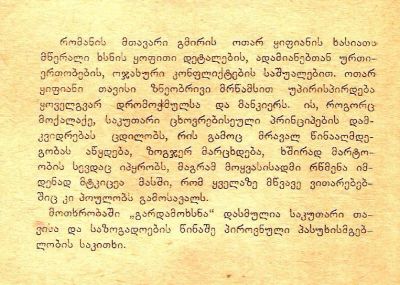 რომანის მთავარი გმირის ოთარ ყიფიანის ხასიათს
მწერალი ხსნის ყოფითი დეტალების, ადამიანებთან ურთი-
ერთობების, ოჯახური კონფლიქტების საშუალებით. ოთარ
ყიფიანი თავისი ზნეობრივი მრწამსით უპირისპირდება
ყოველგვარ დრომოჭმულსა და მანკიერს. ის, როგორც
მოქალაქე, საკუთარი ცხოვრებისეული პრინციპების დამ-
კვიდრებას ცდილობს, რის გამოც მრავალ წინააღმდე-
გობას აწყდება, ზოგჯერ მარცხდება, ხშირად მარტო-
ობის სევდაც იპყრობს, მაგრამ მოყვასისადმი რწმენა იმ-
დენად მტკიცეა მასში, რომ ყველაზე მწვავე ვითარებებ-
შიც კი პოულობს გამოსავალს.
მოთხრობაში „გარდამოხსნა" დასმულია საკუთარი თა-
ვისა და საზოგადოების წინაშე პიროვნული პასუხისმგებ-
ლობის საკითხი.